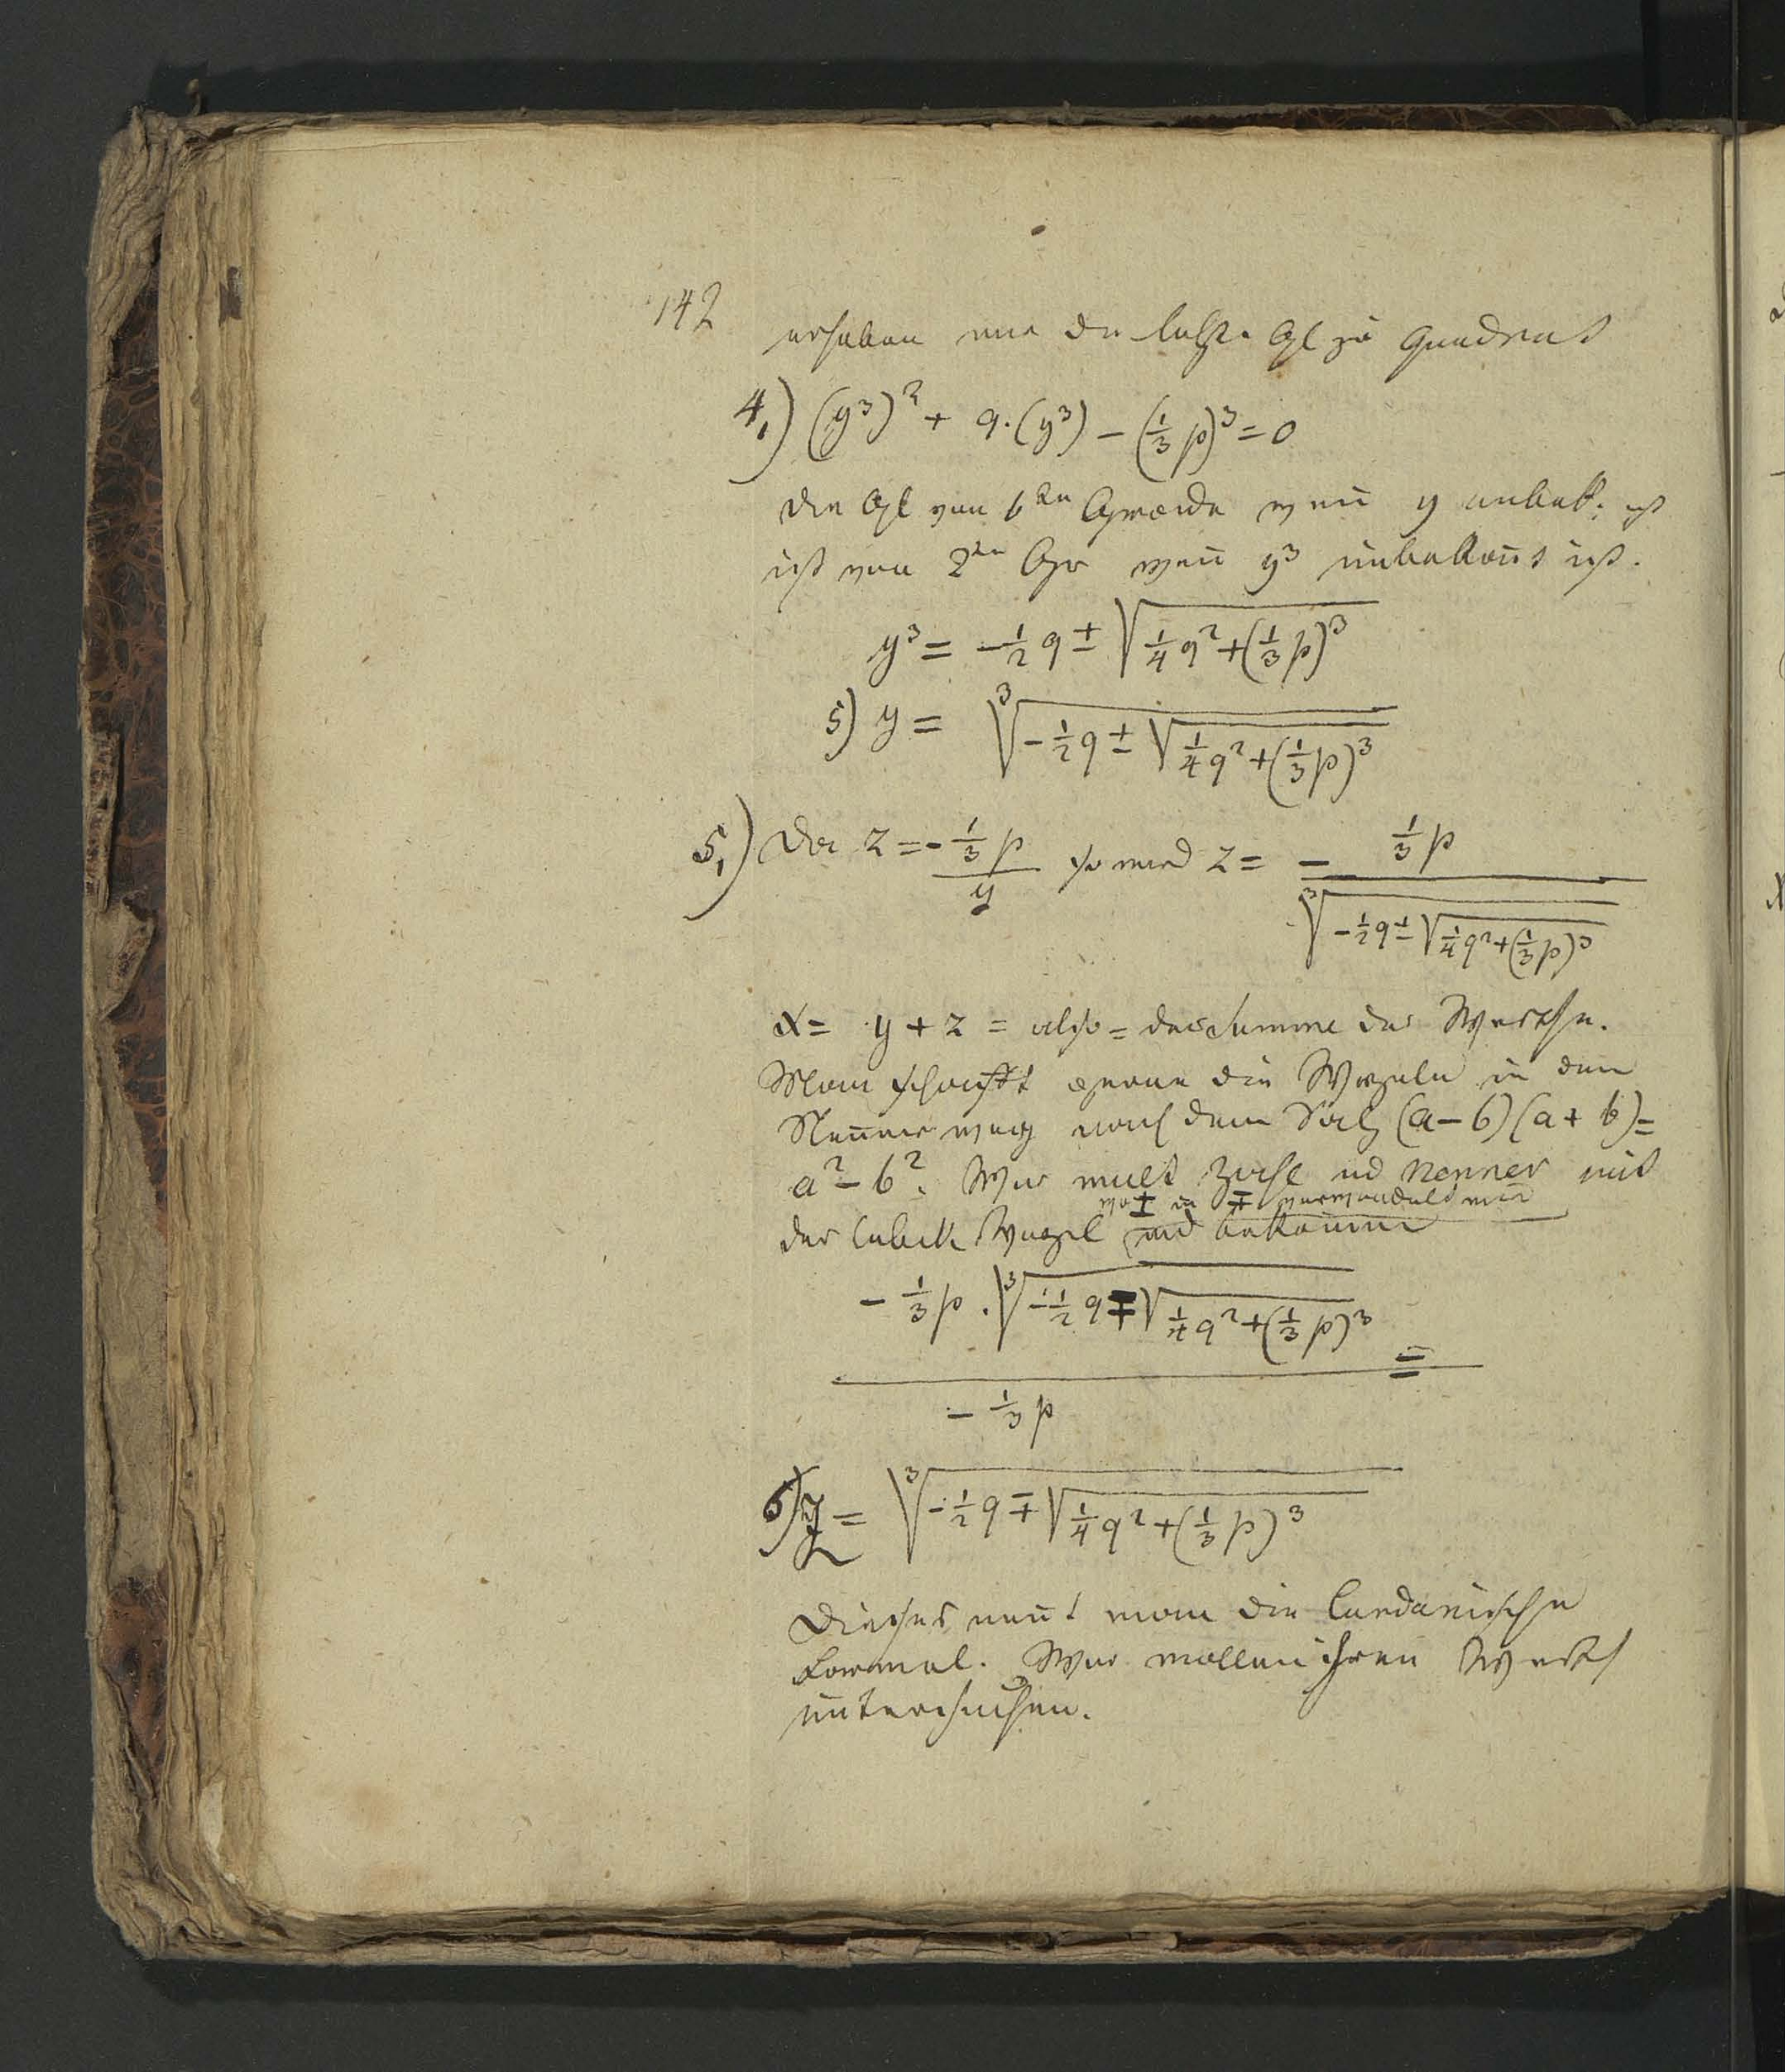 142
erhaben nun die letzte Gl zu Quadrat
4,) (y³)² + q·(y³) – (1/3 p)³ = 0
Die Gl vom 6ten Grade wen̄ y unbek: ist
ist vom 2ten Gr wen̄ y³ unbekan̄t ist.
y³ = –1/2 q ± √(1/4 q² + (1/3 p)³)
5) y = ³√(–1/2 q ± √(1/4 q² + (1/3 p)³))
5,) Da z = –(1/3 p)/y so wird z = – (1/3 p)/(³√(–1/2 q ± √(1/4 q² + (1/3 p)³)))
x = y + z = also = der Summe der Werthe.
Man schafft gerne die Wurzeln in dem
Nen̄er weg nach dem Satz (a – b)(a + b) =
a² – b². Wir mult Zähl und Nenner mit
wo ± in ∓ verwandelt wird
der Cubik Wurzel und bekom̄en
(– 1/3 p · ³√(–1/2 q ∓ √(1/4 q² + (1/3 p)³)))/(– 1/3 p) =
6) z = ³√(–1/2 q ∓ √(1/4 q² + (1/3 p)³))
Dieses nen̄t man die Cardanische
Formel. Wir wollen ihren Werth
untersuchen.